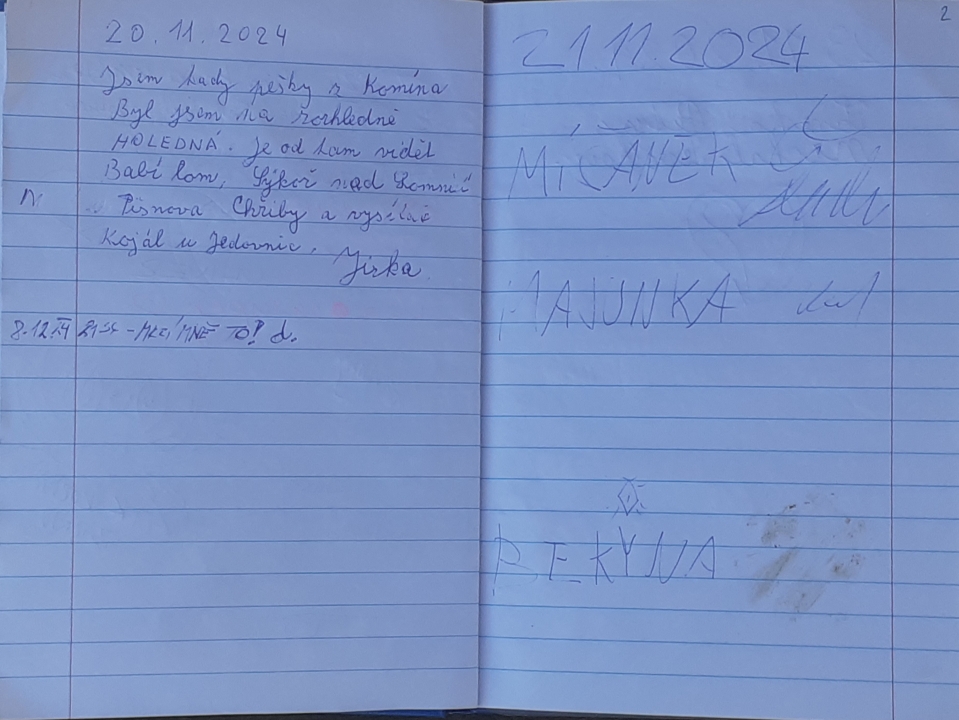 20.11.2024
Jsem tady pěšky z Komína
Byl jsem na rozhledně
HOLEDNÁ. Je od tam vidět
Babí lom, Sýkoř nad Lomnicí
Pisnova Chřiby a vysílač
Kojál u Jedovnic.
Jirka
8.12.24 TO! d.
2
21.11.2024
MAJUNKA
BEKYNA